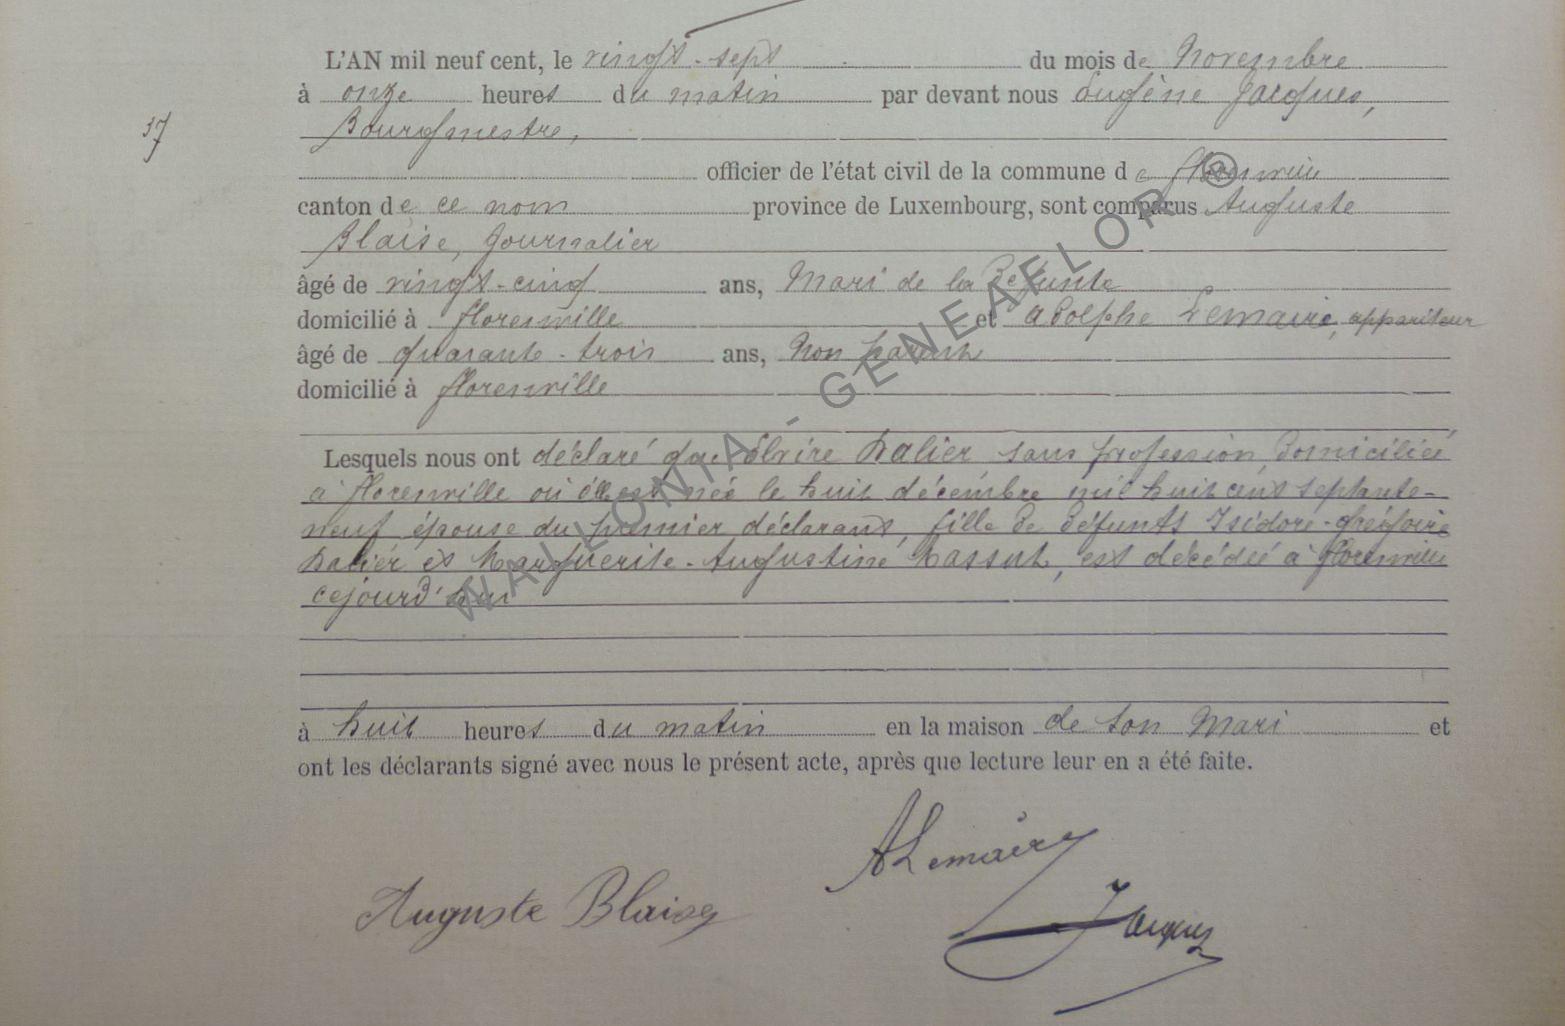 L'AN mil neuf cent, le vingt-sept du mois de Novembre
à onze heures du matin par devant nous Eugène Jacques,
37
Bourgmestre,
officier de l'état civil de la commune de Florenville
canton de ce nom province de Luxembourg, sont comparus Auguste
Blaise, Journalier
âgé de vingt-cinq ans, Mari de la Défunte
domicilié à Florenville et Adolphe Lemaire, appariteur
âgé de quarante-trois ans, Non parent
domicilié à Florenville
Lesquels nous ont déclaré que Elvire sans profession, Domiciliée
à Florenville où elle est née le huit décembre mil huit cent septante-
neuf épouse du premier déclarant, fille de défunts Isidore-Grégoire
et Marguerite-Augustine est décédée à Florenville
cejourd'hui
à huit heures du matin en la maison de son Mari et
ont les déclarants signé avec nous le présent acte, après que lecture leur en a été faite.
ALemaire
Auguste Blaise
Jacques
WALLONIA - GENEAFLOR ®